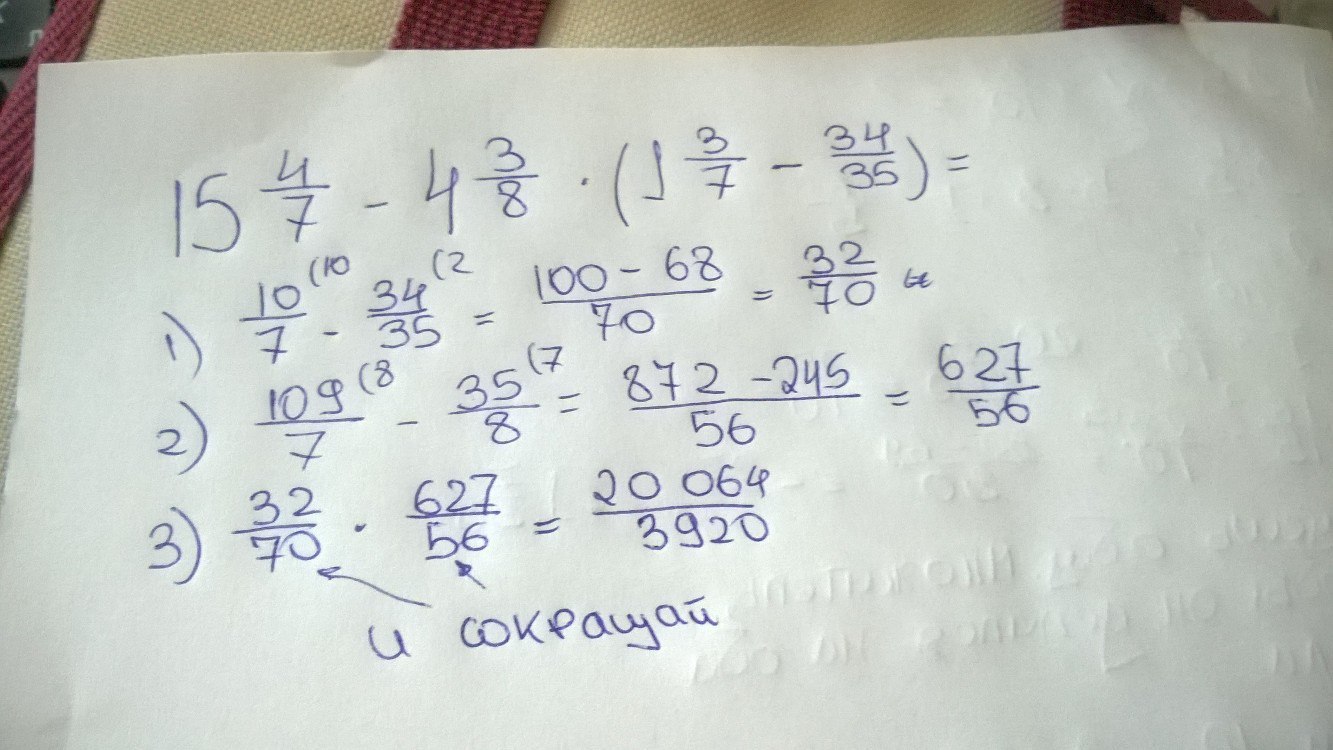 15 4/7 - 4 3/8 · (1 3/7 - 34/35) =
1) 10/7 (10 - 34/35 (2 = 100 - 68/70 = 32/70
2) 109/7 (8 - 35/8 (7 = 872 - 245/56 = 627/56
3) 32/70 · 627/56 = 20 064/3920
и сокращай